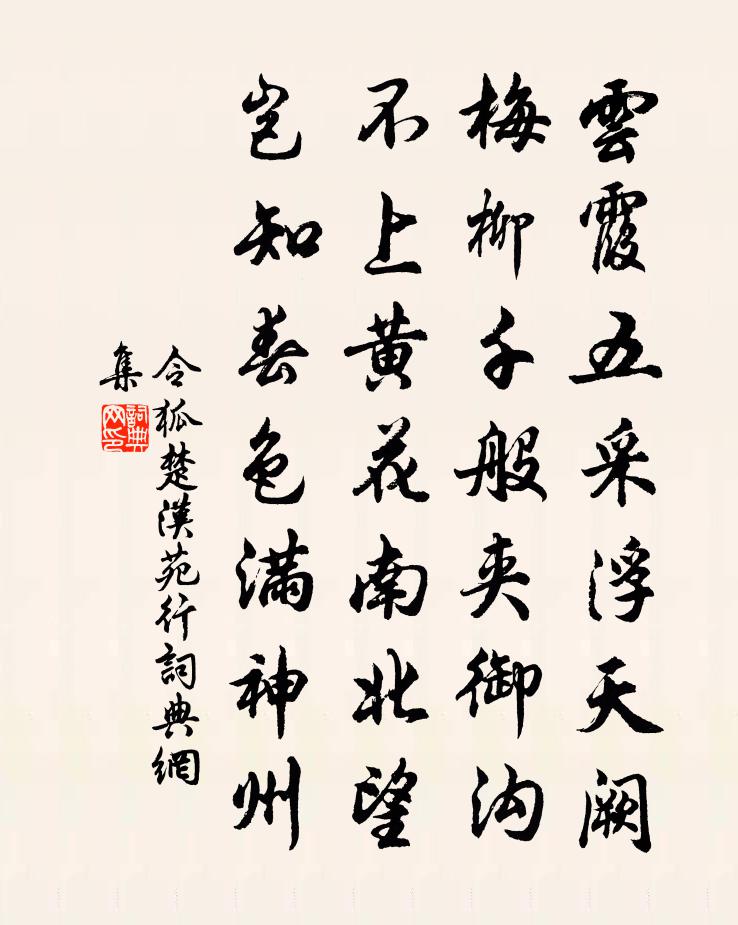 雲霞五采浮天闕
梅柳千般夾御沟
不上黄花南北望
岂知春色滿神州
令狐楚漢苑行詞典網
集
詞典
网印